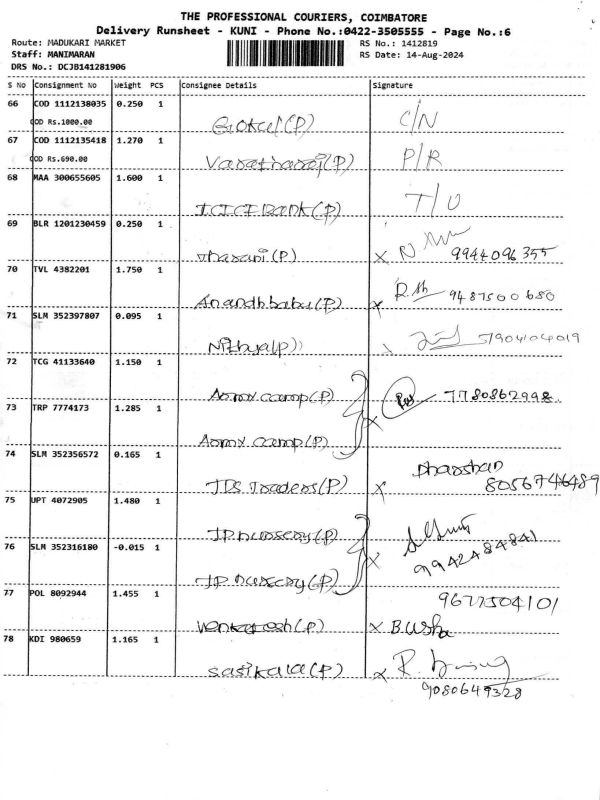 THE PROFESSIONAL COURIERS, COIMBATORE
Delivery Runsheet - KUNI - Phone No.:0422-3505555 - Page No.:6
Route: MADUKARI MARKET RS No.: 1412819
Staff: MANIMARAN RS Date: 14-Aug-2024
DRS No.: DCJB141281906
S No Consignment No Weight PCS Consignee Details Signature
66 COD 1112138035 0.250 1
COD Rs.1000.00 Gokul(P) C/N
67 COD 1112135418 1.270 1
COD Rs.690.00 Varatharaj(P) P/R
68 MAA 300655605 1.600 1
ICICI Bank(P) T/U
69 BLR 1201230459 0.250 1
Tharani(P) x N 9944096355
70 TVL 4382201 1.750 1
Anandhbabu(P) x 9487500680
71 SLM 352397807 0.095 1
Nithya(P)
72 TCG 41133640 1.150 1
Army camp(P) x 7780862998
73 TRP 7774173 1.285 1
Army camp(P)
74 SLM 352356572 0.165 1
Dharshan
JDS Traders(P) x 8056746489
75 UPT 4072905 1.480 1
JP nursery(P)
76 SLM 352316180 -0.015 1 x 9942484841
JP nursery(P)
77 POL 8092944 1.455 1 9677504101
Venkatesh(P) x B.Usha
78 KDI 980659 1.165 1
Sasikala(P) x R.
9080649328